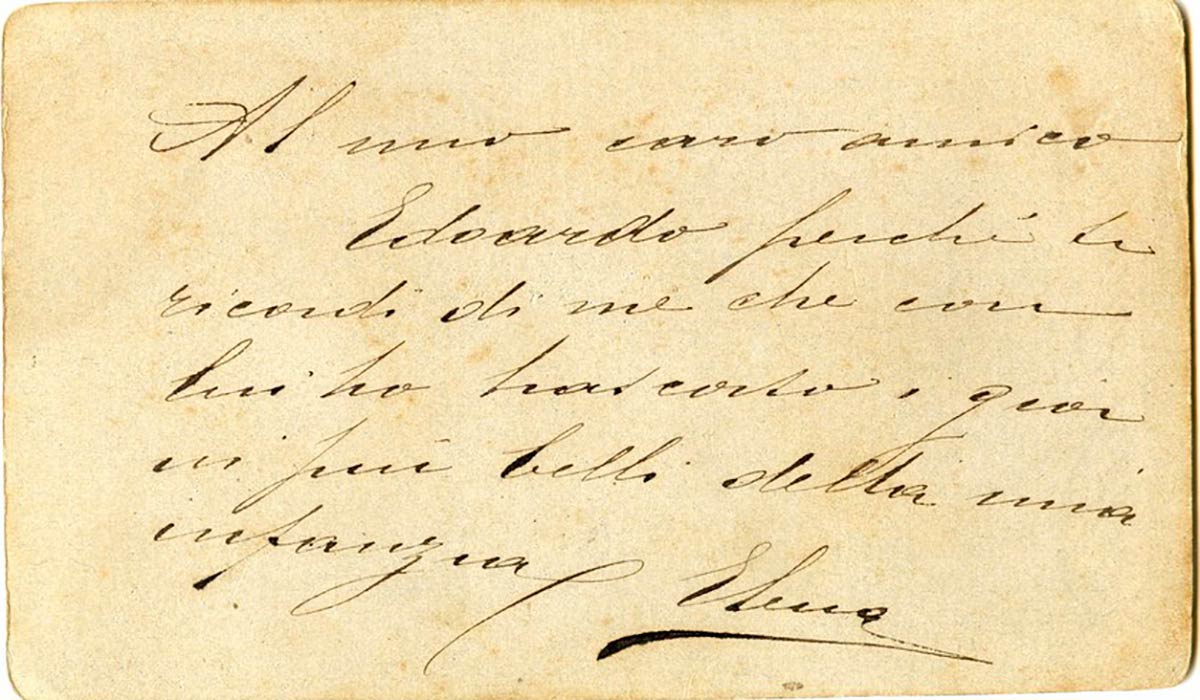 Al mio caro amico
Edoardo perché ti
ricordi di me che con
lui ho trascorso i gior
ni più belli della mia
infanzia
Elena